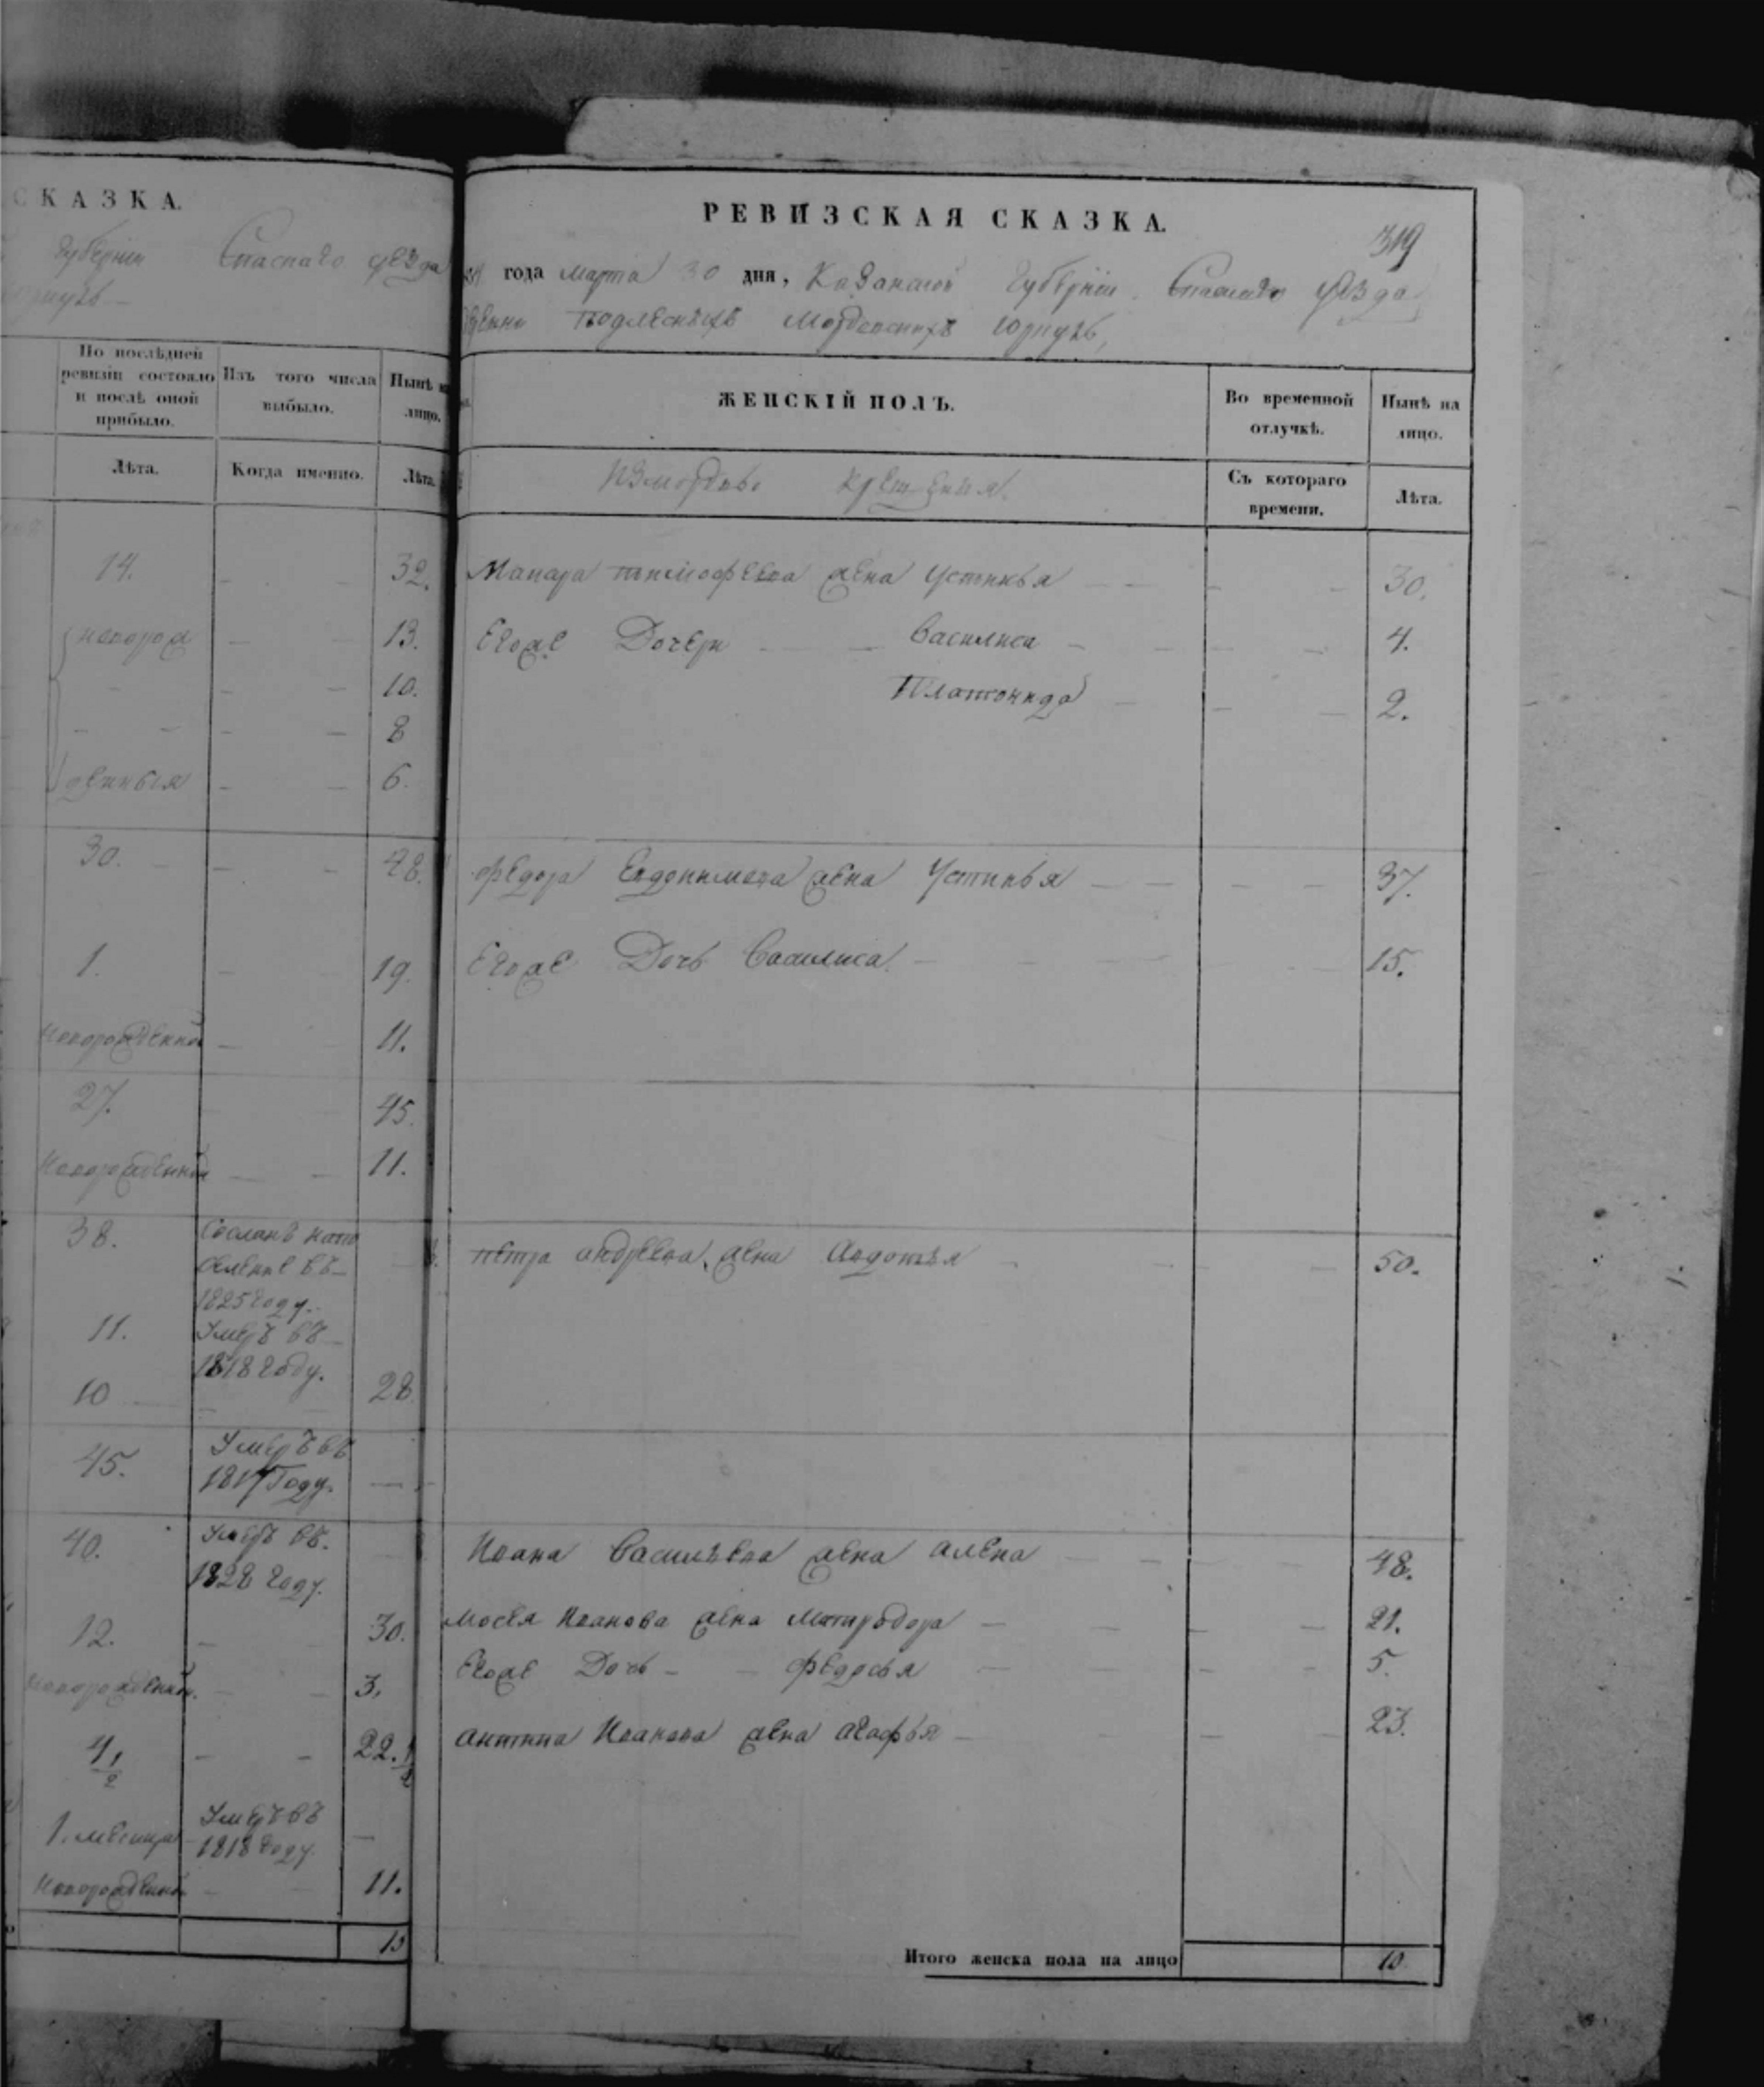 СКАЗКА.
Губерніи Спаскаго уѣзда
По послѣдней ревизіи состояло и послѣ оной прибыло.
Изъ того числа выбыло.
Нынѣ на лицо.
Лѣта.
Когда именно.
Лѣта.
14. - - 32.
новорож - - 13.
- - - 10.
- - - - 8
денныя - - 6.
30. - - - 48.
1. - 19.
Новорожденной - 11.
27. 45.
Новорожденной - - 11.
38. Сосланъ на по
селение въ
1825 году.
11. Умеръ въ
1818 году.
10 - - 28
45. Умеръ въ
1817 Году. -
40. Умеръ въ.
1828 году.
12. - 30.
Новорожденной. - - 3.
4 1/2 - - 22. 1/2
1. месяца Умеръ въ
1818 году -
Новорожденной - 11.
13
РЕВИЗСКАЯ СКАЗКА.
319
года марта 30 дня, Казанской Губерніи Спаскаго уѣзда
Подлесныхъ Мордовскихъ Юрткуль,
ЖЕНСКІЙ ПОЛЪ.
Во временной отлучкѣ.
Нынѣ на лицо.
Измордвы Крещеныя
Съ котораго времени.
Лѣта.
Макара тимофеева жена Устинья - - - - 30.
Егоже Дочери - - Василиса - - - - 4.
Платонида - - - 2.
Федора Евдокимова жена Устинья - - - - 37.
Егоже Дочь Василиса. - - - - 15.
петра андреева жена Авдотья - - - 50.
Ивана Васильева жена алена - - - 48.
Мосея Иванова жена Митродора - - - - 21.
Егоже Дочь - - Федосья - - - - 5.
антипа Иванова жена агафья - - - 23.
Итого женска пола на лицо 10